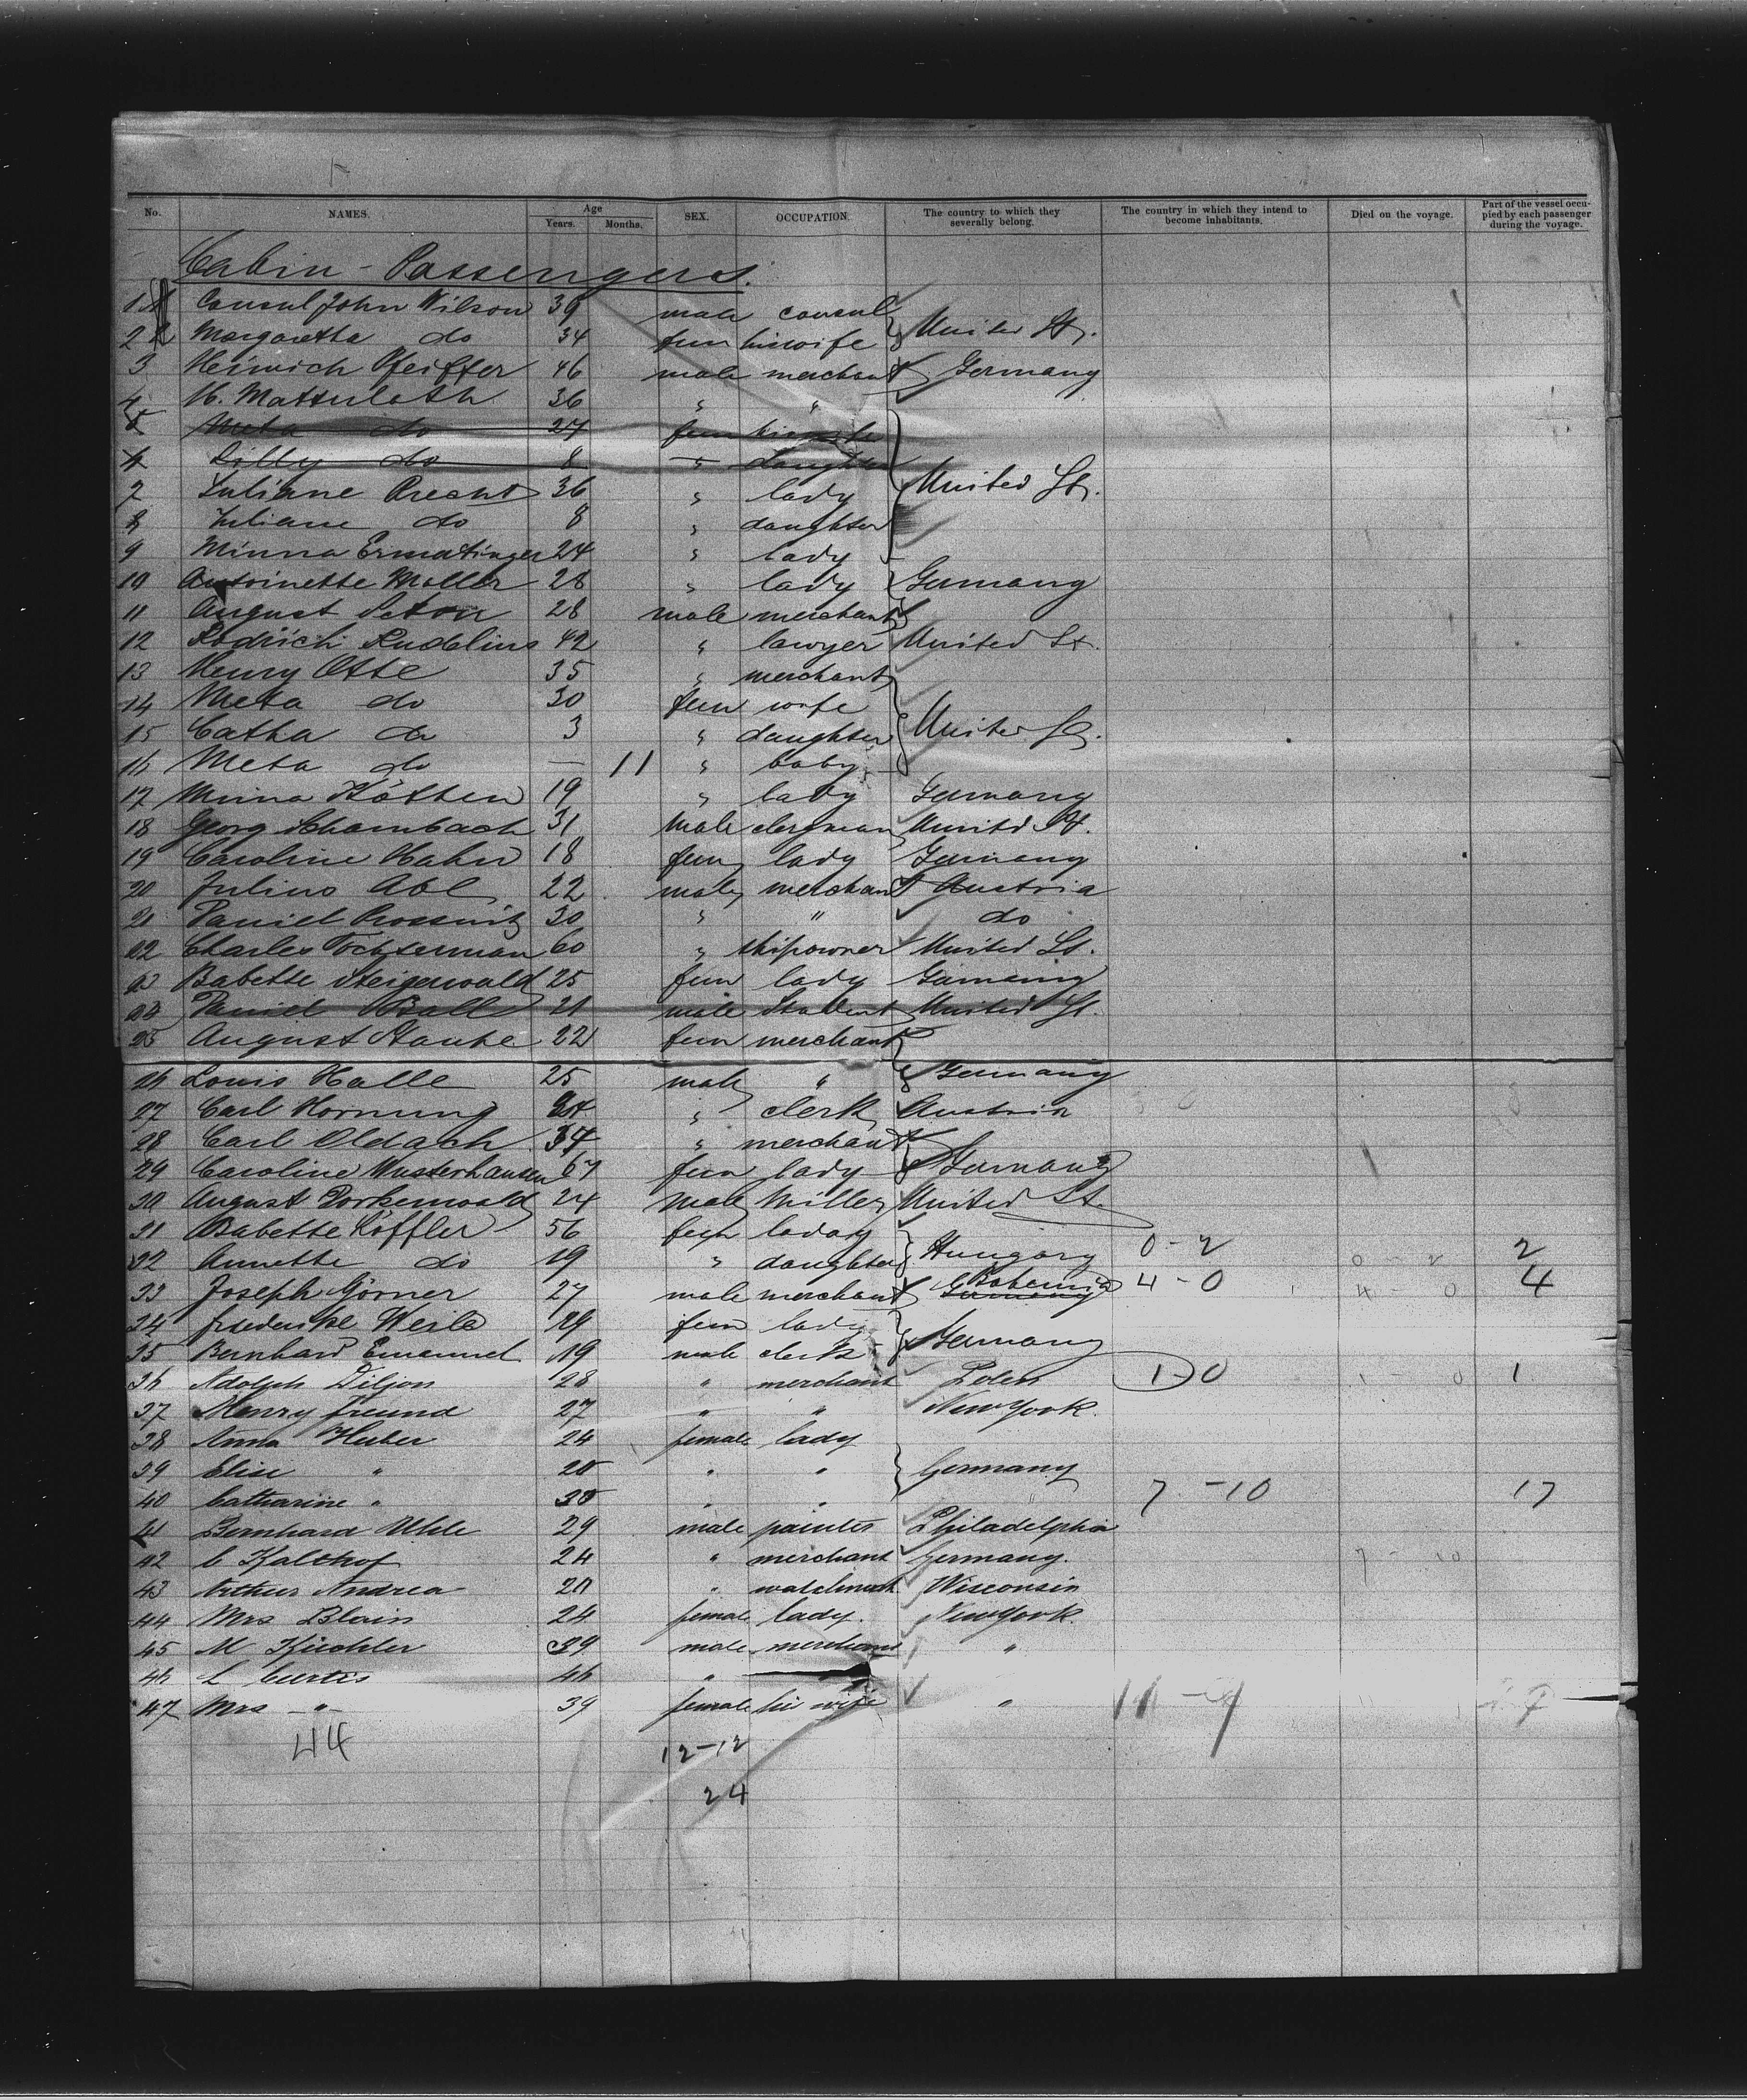 No. NAMES. Age Years. Months. SEX. OCCUPATION. The country to which they severally belong. The country in which they intend to become inhabitants. Died on the voyage. Part of the vessel occupied by each passenger during the voyage.
Cabin-Passengers.
1 Consul John Wilson 39 male consul
2 Margaretha do 34 fem his wife United St.
3 Heinrich Pfeiffer 46 male merchant Germany
4 H. 36 " "
5 Meta do 27 fem his wife
6 Lilly do 8 " daughter
7 Juliane Precht 36 " lady United St.
8 Juliane do 8 " daughter
9 Minna Ermatinger 24 " lady
10 Antoinette Moller 28 " lady Germany
11 August 28 male merchant
12 42 " lawyer United St.
13 Henry Otte 35 " merchant
14 Meta do 30 fem wife
15 Catha do 3 " daughter United St.
16 Meta do — 11 " baby
17 Minna 19 " lady Germany
18 Georg Schambach 31 male clergman United St.
19 Caroline Hahn 18 fem lady Germany
20 Julius Abl 22 male merchant Austria
21 Daniel 30 " " do
22 Charles Tochterman 60 " shipowner United St.
23 Babette Steigerwald 25 fem lady Germany
Daniel Ball 21 male Student United St.
25 August 22 fem merchant
26 Louis Halle 25 male " Germany
27 Carl Hornung " clerk Austria
28 Carl Oldach 34 " merchant
29 Caroline Musterhausen 67 fem lady Germany
30 August 24 male Miller United St.
31 Babette Löffler 56 fem laday
32 Annette do 19 " daughter Hungary 0-2 0-2 2
33 Joseph Görner 27 male merchant Bohemia Germany 4-0 4-0 4
34 Friederike Weile 29 fem lady
35 Bernhard Emanuel 19 male clerk Germany
36 Adolph Diljon 28 " merchant 1-0 1-0 1
37 Henry Freund 27 " " New York.
38 Anna Huber 24 female lady
39 Elise " 20 " " Germany
40 Catharine " 30 " " 7-10 17
41 Bernhard Uhle 29 male painter Philadelphia
42 C Kalthof 24 " merchant Germany. 7-10
43 Arthur Andrea 20 " Wisconsin
44 Mrs Blain 24 female lady. New York
45 M Küchler 39 male merchant "
46 L Curtis 46 "
47 Mrs -"- 39 female his wife "
44 12-12
24